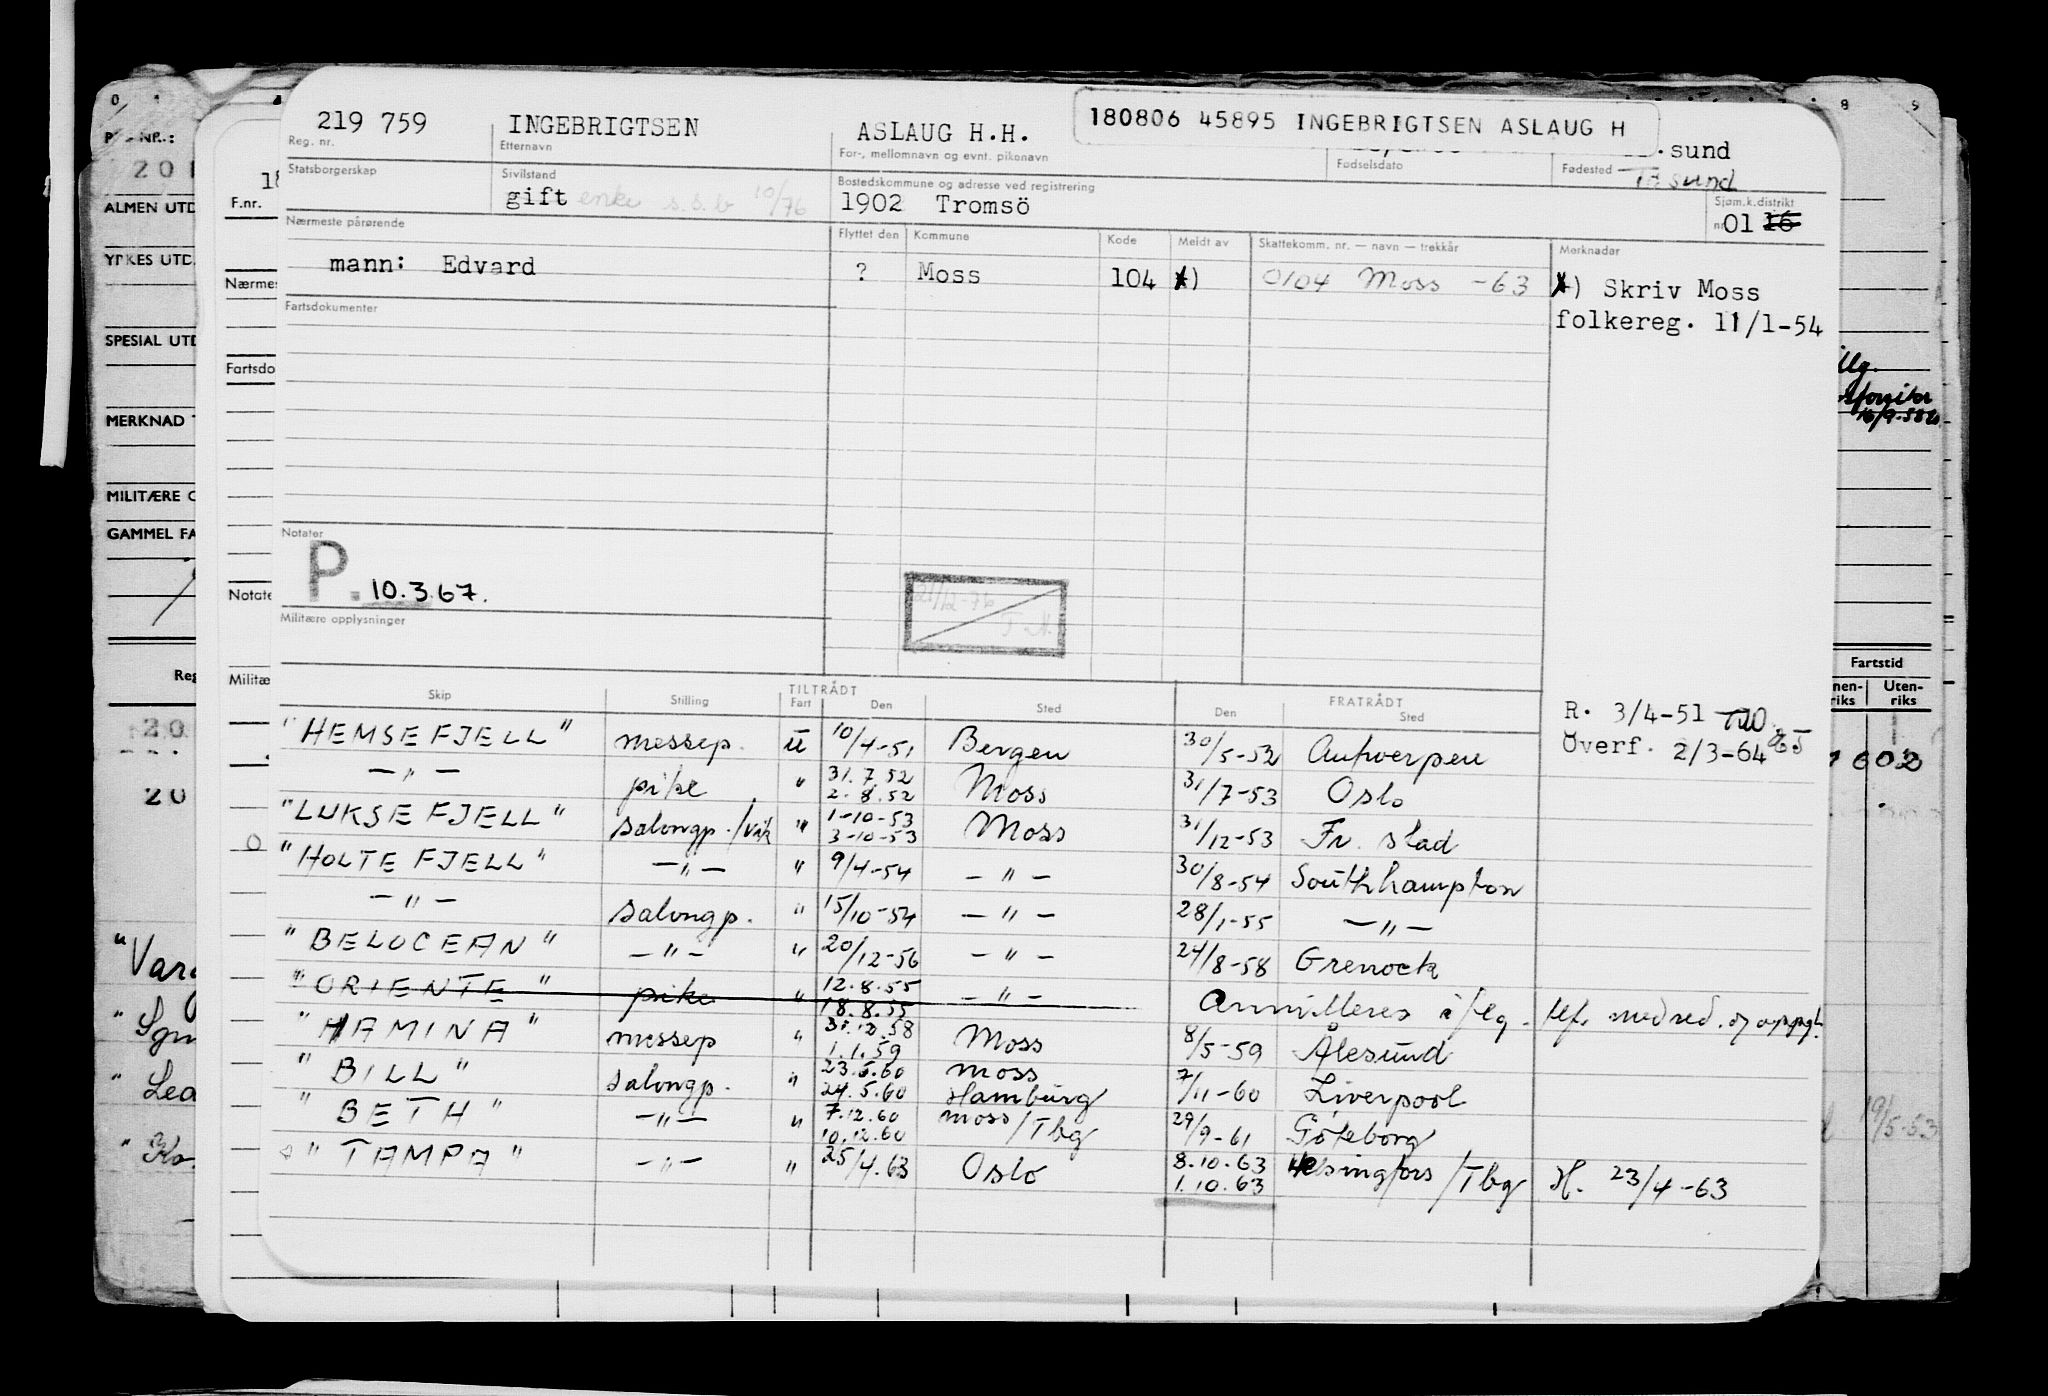 219 759 INGEBRIGTSEN ASLAUG H.H. 180806 45895 INGEBRIGTSEN ASLAUG H
Reg. nr. Etternavn For-, mellomnavn og evnt. pikenavn Fødselsdato Fødested .sund
Tr sund
Statsborgerskap Sivilstand Bostedskommune og adresse ved registrering Sjøm.k.distrikt
gift enke s.s.b 10/76 1902 Tromsö nr 01 16
Nærmeste pårørende Flyttet den Kommune Kode Meldt av Skattekomm. nr. — navn — trekkår Merknader
mann: Edvard ? Moss 104 x) 0104 Moss -63 x) Skriv Moss
folkereg. 11/1-54
Fartsdokumenter
Notater
P. 10.3.67.
21/12-76
Militære opplysninger
Skip Stilling TILTRÅDT Fart Den Sted FRATRÅDT Den Sted
R. 3/4-51
Överf. 2/3-64
"HEMSEFJELL" messep. u 10/4-51 Bergen 30/5-52 Antwerpen
— " — pike " 31.7.52 2.8.52 Moss 31/7-53 Oslo
"LUKSEFJELL" salongp./vik " 1-10-53 3-10-53 Moss 31/12-53 Fr. stad
"HOLTEFJELL" — " — " 9/4-54 — " — 30/8-54 Southhampton
— " — salongp. " 15/10-54 — " — 28/1-55 — " —
"BELOCEAN" — " — " 20/12-56 — " — 24/8-58 Grenock
"ORIENTE" pike " 12.8.55 18.8.55 — " — Annulleres i flg. tlf. med red. og oppgt.
"HAMINA" messep " 31.12.58 1.1.59 Moss 8/5-59 Ålesund
"BILL" salongp. " 23.5.60 24.5.60 Moss Hamburg 7/11-60 Liverpool
"BETH" — " — " 7.12.60 10.12.60 Moss/Tbg 29/9-61 Göteborg
"TAMPA" — " — " 25/4.63 Oslo 8.10.63 1.10.63 Helsingfors/Tbg H. 23/4-63
ALMEN UTD
F.nr.
YRKES UTD.
Nærmes
SPESIAL UTD
Fartsdo
MERKNAD
MILITÆRE
GAMMEL FA
Notate
Militæ
Reg
20
Fartstid
nen-riks Uten-riks
16/9-58
19/5-53